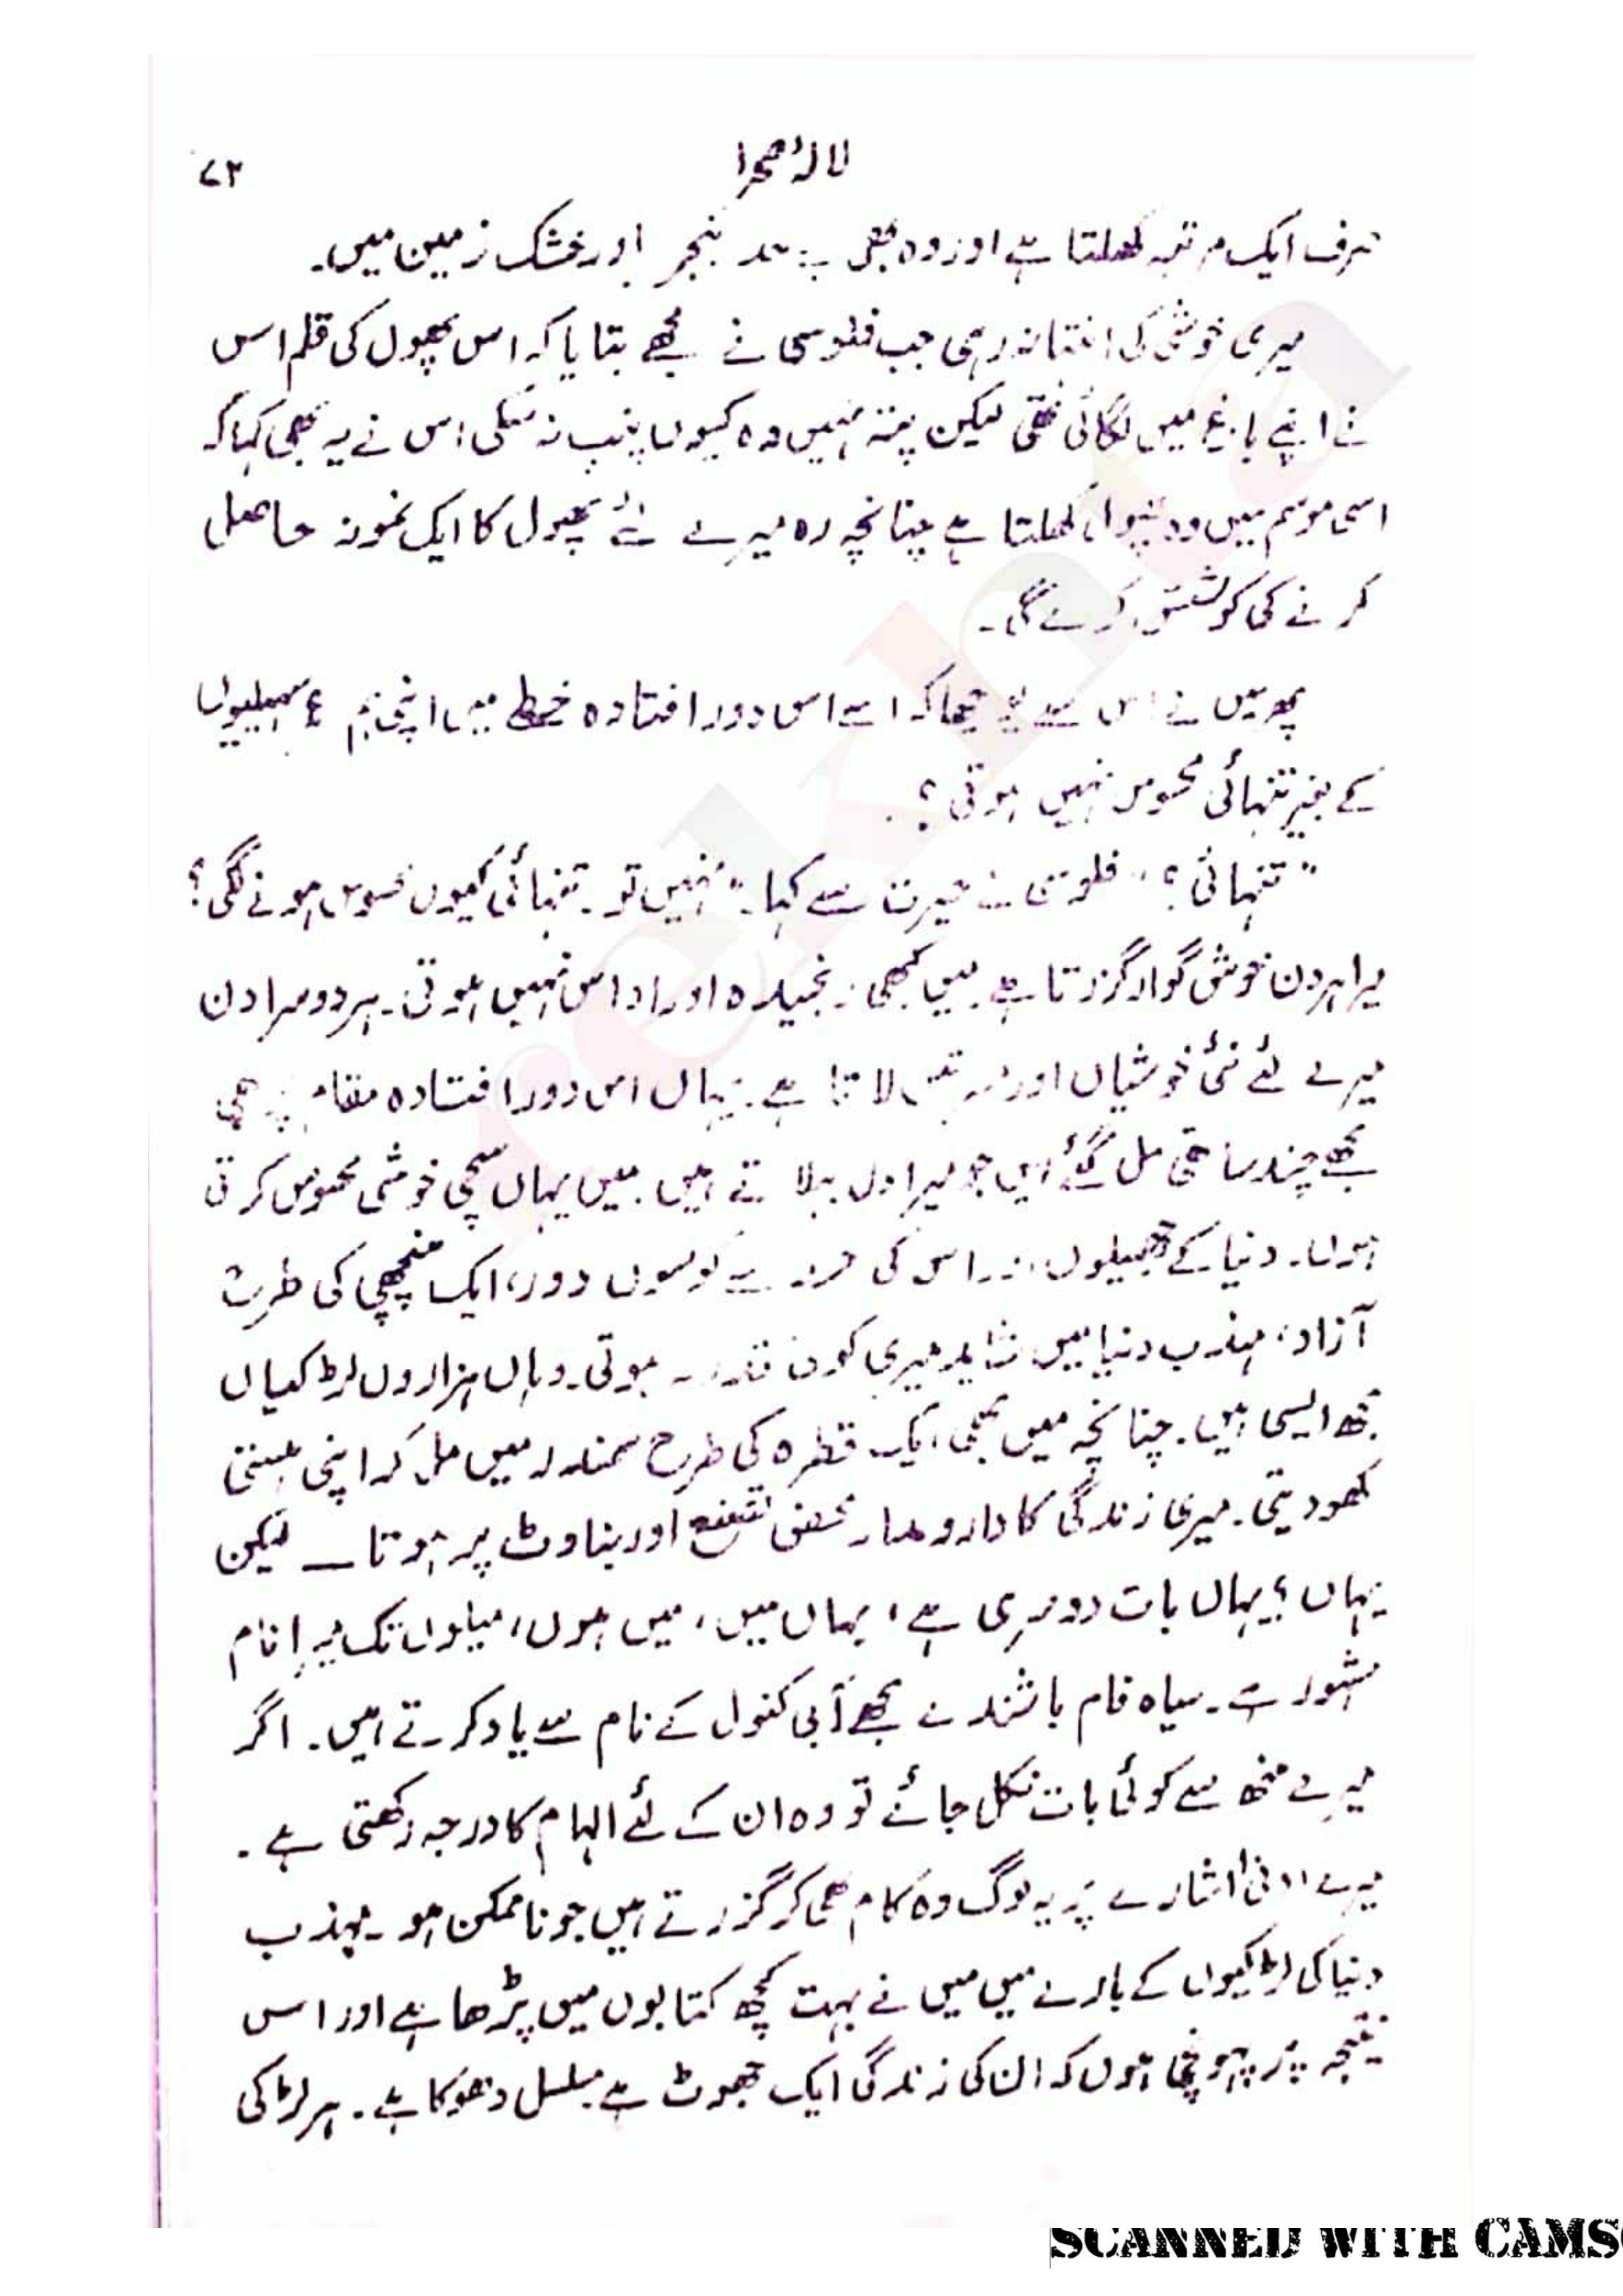 لالۂ صحرا ۷۳
صرف ایک مرتبہ کھلتا ہے اور وہ بھی بے حد بنجر اور خشک زمین میں۔
میری خوشی کی انتہا نہ رہی جب فلوسی نے مجھے بتایا کہ اس پھول کی قلم اس
نے اپنے باغ میں لگائی تھی لیکن پتہ نہیں وہ کیوں پنپ نہ سکی اس نے یہ بھی کہا کہ
اسی موسم میں وہ پھول کھلتا ہے چنانچہ وہ میرے لئے پھول کا ایک نمونہ حاصل
کرنے کی کوشش کرے گی۔
پھر میں نے اس سے پوچھا کہ اسے اس دور افتادہ خطے میں اپنی ہم عمر سہیلیوں
کے بغیر تنہائی محسوس نہیں ہوتی؟
"تنہائی؟" فلوسی نے حیرت سے کہا۔ "نہیں تو۔ تنہائی کیوں محسوس ہونے لگی؟
میرا ہر دن خوش گوار گزرتا ہے میں کبھی رنجیدہ اور اداس نہیں ہوتی۔ ہر دوسرا دن
میرے لئے نئی خوشیاں اور مسرتیں لاتا ہے۔ یہاں اس دور افتادہ مقام پر بھی
مجھے چند ساتھی مل گئے ہیں جو میرا دل بہلاتے ہیں۔ میں یہاں سچی خوشی محسوس کرتی
ہوں۔ دنیا کے جھمیلوں اور اس کی سے کوسوں دور، ایک پنچھی کی طرح
آزاد، مہذب دنیا میں شاید میری کوئی قدر نہ ہوتی۔ وہاں ہزاروں لڑکیاں
مجھ ایسی ہیں۔ چنانچہ میں بھی ایک قطرہ کی طرح سمندر میں مل کر اپنی ہستی
کھو دیتی۔ میری زندگی کا دارومدار محض تصنع اور بناوٹ پر ہوتا ــ لیکن
یہاں؟ یہاں بات دوسری ہے، یہاں میں، میں ہوں، میلوں تک میرا نام
مشہور ہے۔ سیاہ فام باشندے مجھے آبی کنول کے نام سے یاد کرتے ہیں۔ اگر
میرے منھ سے کوئی بات نکل جائے تو وہ ان کے لئے الہام کا درجہ رکھتی ہے۔
میرے ادنیٰ اشارے پر یہ لوگ وہ کام بھی کر گزرتے ہیں جو ناممکن ہو۔ مہذب
دنیا کی لڑکیوں کے بارے میں میں نے بہت کچھ کتابوں میں پڑھا ہے اور اس
نتیجہ پر پہونچی ہوں کہ ان کی زندگی ایک جھوٹ ہے مسلسل دھوکا ہے۔ ہر لڑکی
SCANNED WITH CAMS